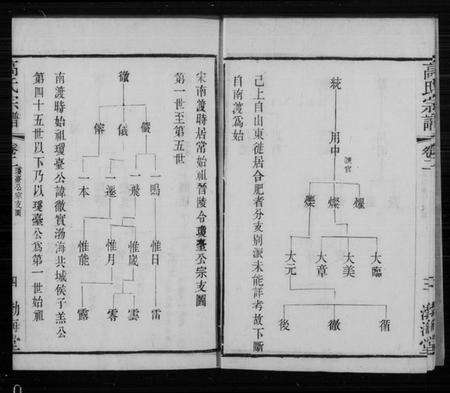 高氏宗譜
卷二
二
渤海堂
統
用中
漢官
耀
燦
爍
大臨
大美
大章
大元
循
徹
後
已上自山東徙居合肥者分支別派未能詳考故下斷
自南渡為始
宋南渡時居常始祖晉陵令瓊臺公宗支圖
第一世至第五世
徹
儼
儀
傺
一鳴
一飛
一遷
一本
惟日
惟歲
惟月
惟能
雷
雲
零
露
南渡時始祖瓊臺公諱徹實渤海共城侯子羔公
第四十五世以下乃以瓊臺公為第一世始祖
高氏宗譜
瓊臺公宗支圖
四
渤海堂